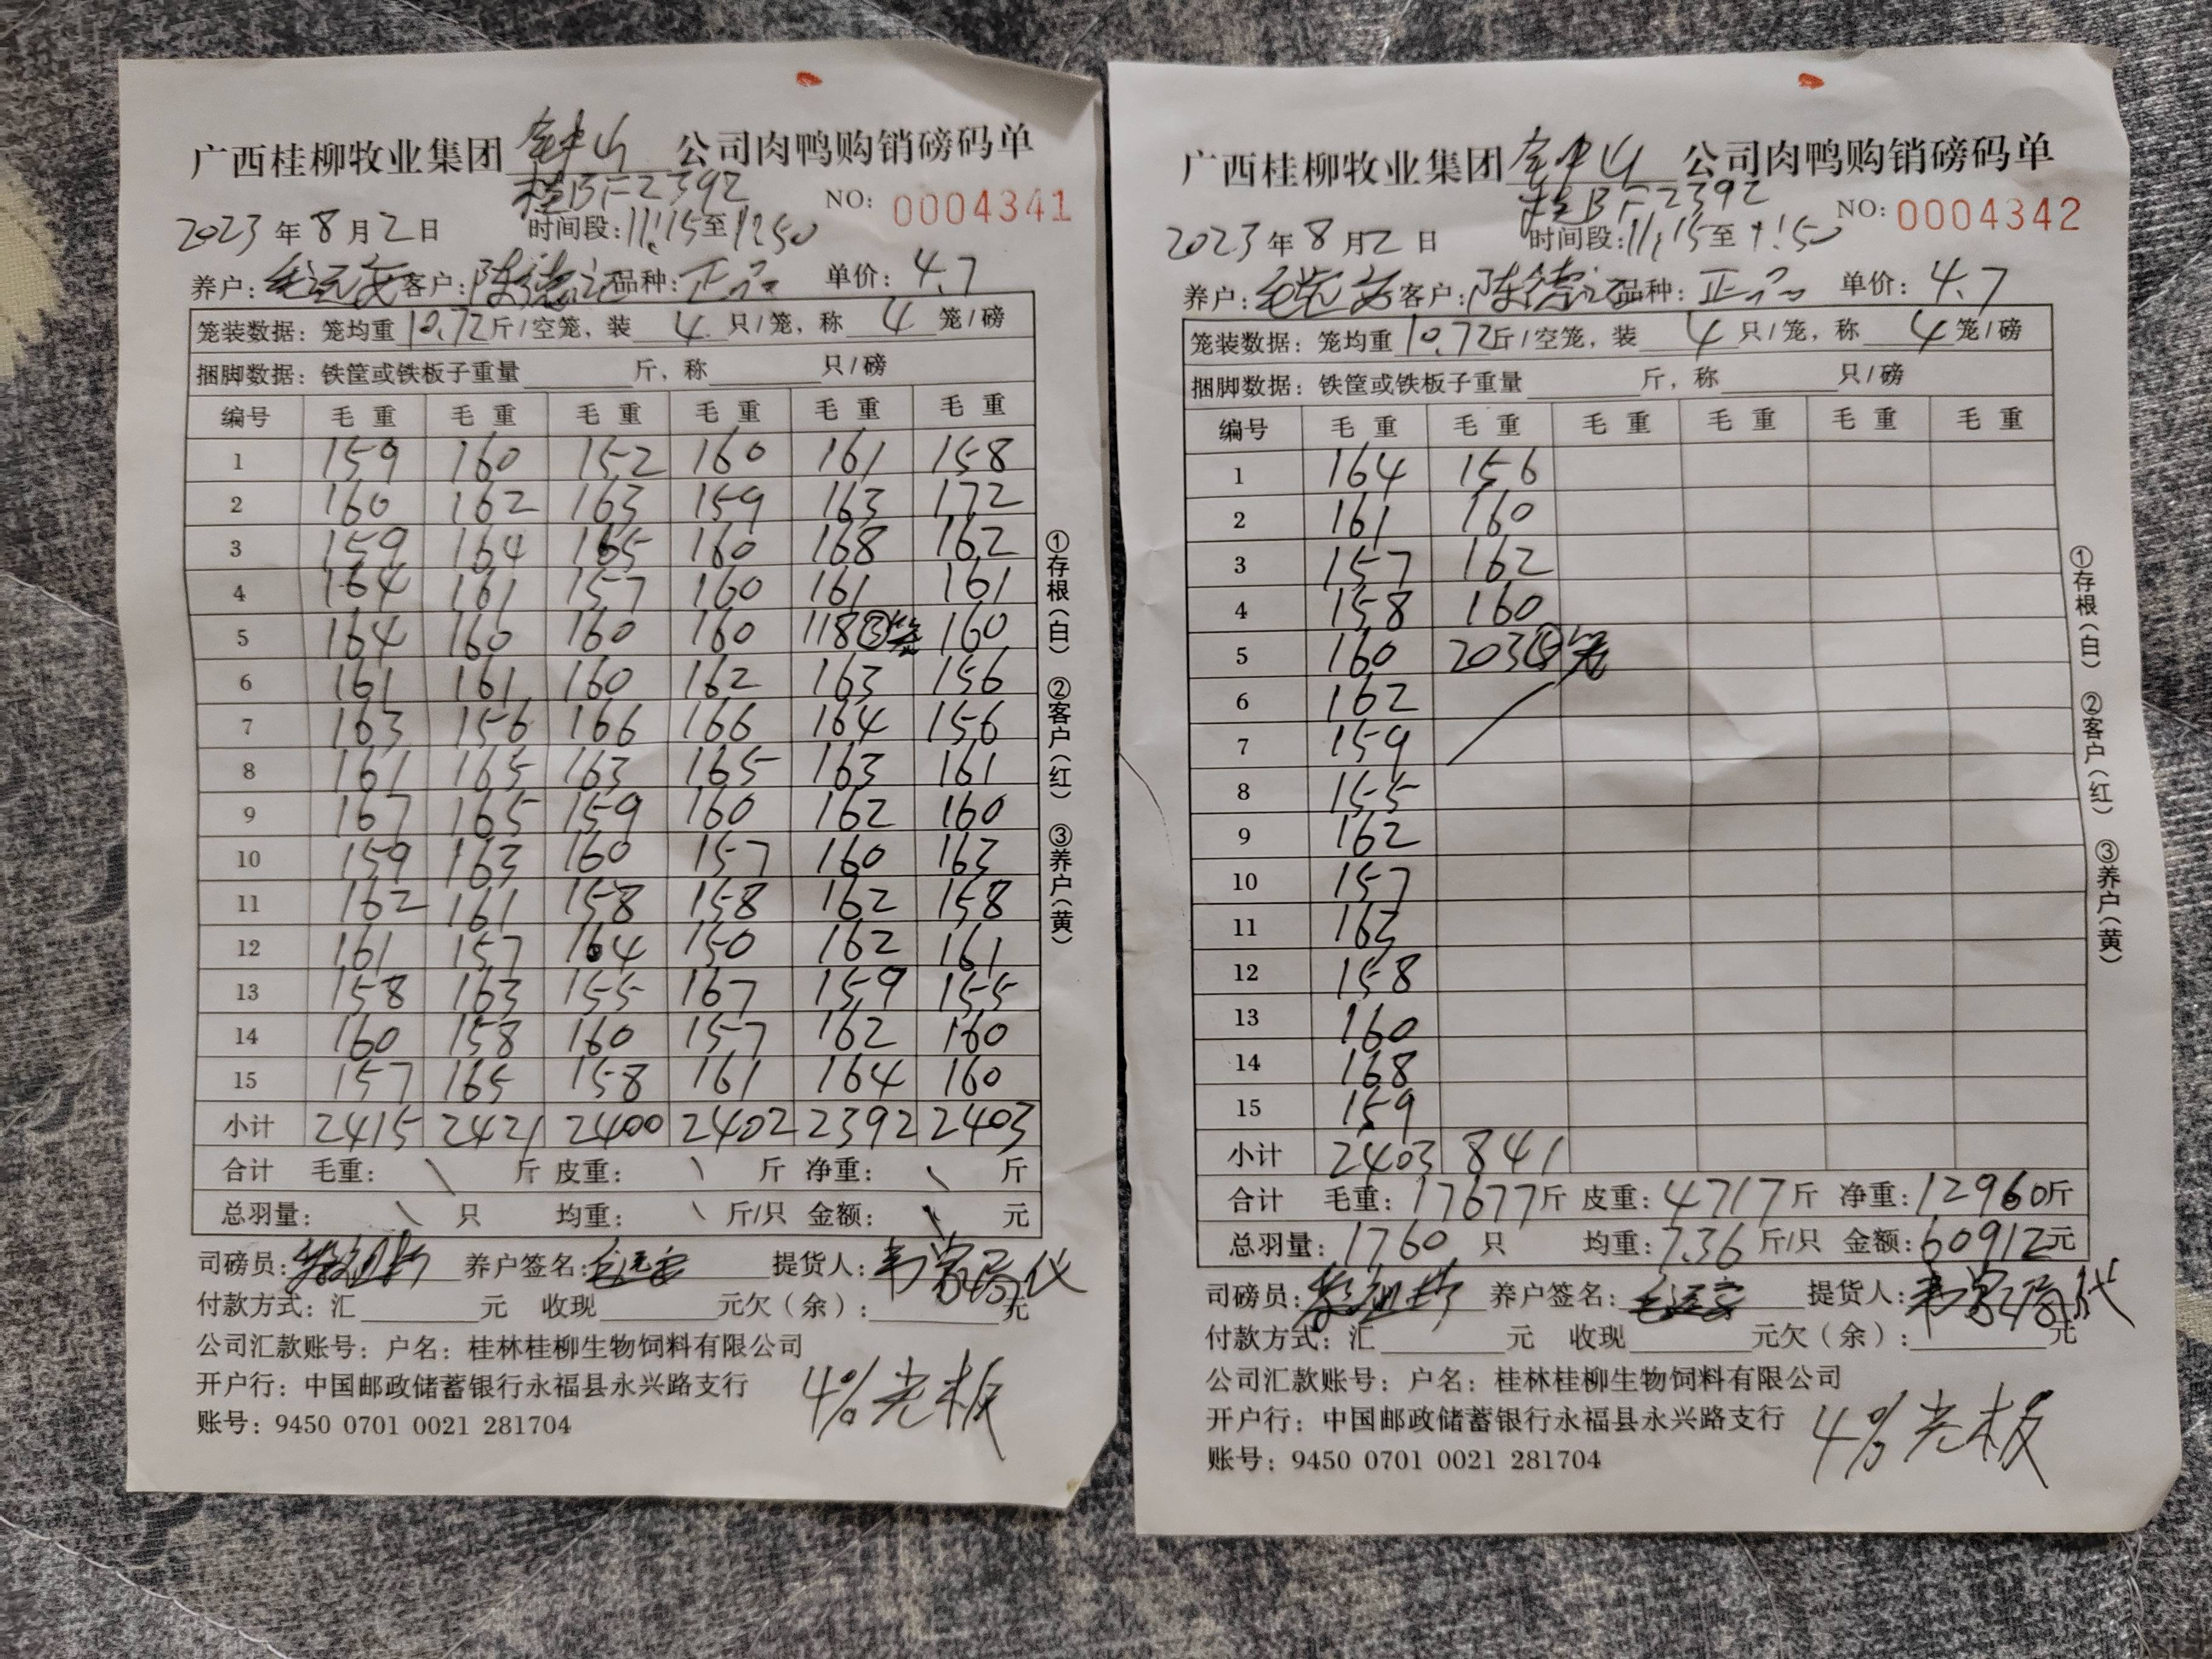 广西桂柳牧业集团 钟山 公司肉鸭购销磅码单
桂BF2392
NO: 0004341
2023年8月2日 时间段:11:15至1:50
养户: 客户:陈德 品种:正品 单价:4.7
笼装数据:笼均重10.72斤/空笼,装4只/笼,称4笼/磅
捆脚数据:铁筐或铁板子重量 斤,称 只/磅
编号 毛重 毛重 毛重 毛重 毛重 毛重
1 159 160 152 160 161 158
2 160 162 163 159 163 172
3 159 164 165 160 168 162
4 164 161 157 160 161 161
5 164 160 160 160 118③笼 160
6 161 161 160 162 163 156
7 163 156 166 166 164 156
8 161 165 163 165 163 161
9 167 165 159 160 162 160
10 159 163 160 157 160 163
11 162 161 158 158 162 158
12 161 157 164 150 162 161
13 158 163 155 167 159 155
14 160 158 160 157 162 160
15 157 165 158 161 164 160
小计 2415 2421 2400 2402 2392 2403
合计 毛重: \ 斤 皮重: \ 斤 净重: \ 斤
总羽量: \ 只 均重: \ 斤/只 金额: \ 元
司磅员: 养户签名: 提货人:
付款方式:汇 元 收现 元欠(余): 元
公司汇款账号:户名:桂林桂柳生物饲料有限公司
开户行:中国邮政储蓄银行永福县永兴路支行
账号:9450 0701 0021 281704
4%光板
①存根(白) ②客户(红) ③养户(黄)
广西桂柳牧业集团 钟山 公司肉鸭购销磅码单
桂BF2392
NO: 0004342
2023年8月2日 时间段:11:15至1:50
养户: 客户:陈德 品种:正品 单价:4.7
笼装数据:笼均重10.72斤/空笼,装4只/笼,称4笼/磅
捆脚数据:铁筐或铁板子重量 斤,称 只/磅
编号 毛重 毛重 毛重 毛重 毛重 毛重
1 164 156
2 161 160
3 157 162
4 158 160
5 160 203⑤笼
6 162
7 159
8 155
9 162
10 157
11 163
12 158
13 160
14 168
15 159
小计 2403 841
合计 毛重:17677斤 皮重:4717斤 净重:12960斤
总羽量:1760只 均重:7.36斤/只 金额:60912元
司磅员: 养户签名: 提货人:
付款方式:汇 元 收现 元欠(余): 元
公司汇款账号:户名:桂林桂柳生物饲料有限公司
开户行:中国邮政储蓄银行永福县永兴路支行
账号:9450 0701 0021 281704
4%光板
①存根(白) ②客户(红) ③养户(黄)